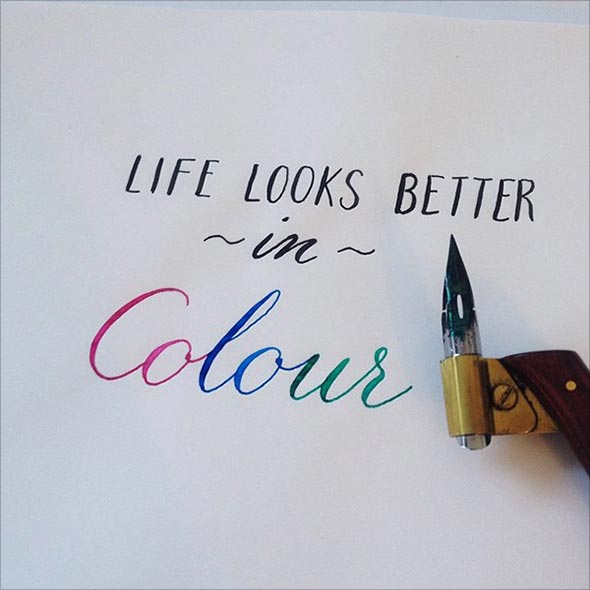 LIFE LOOKS BETTER
~in~
Colour